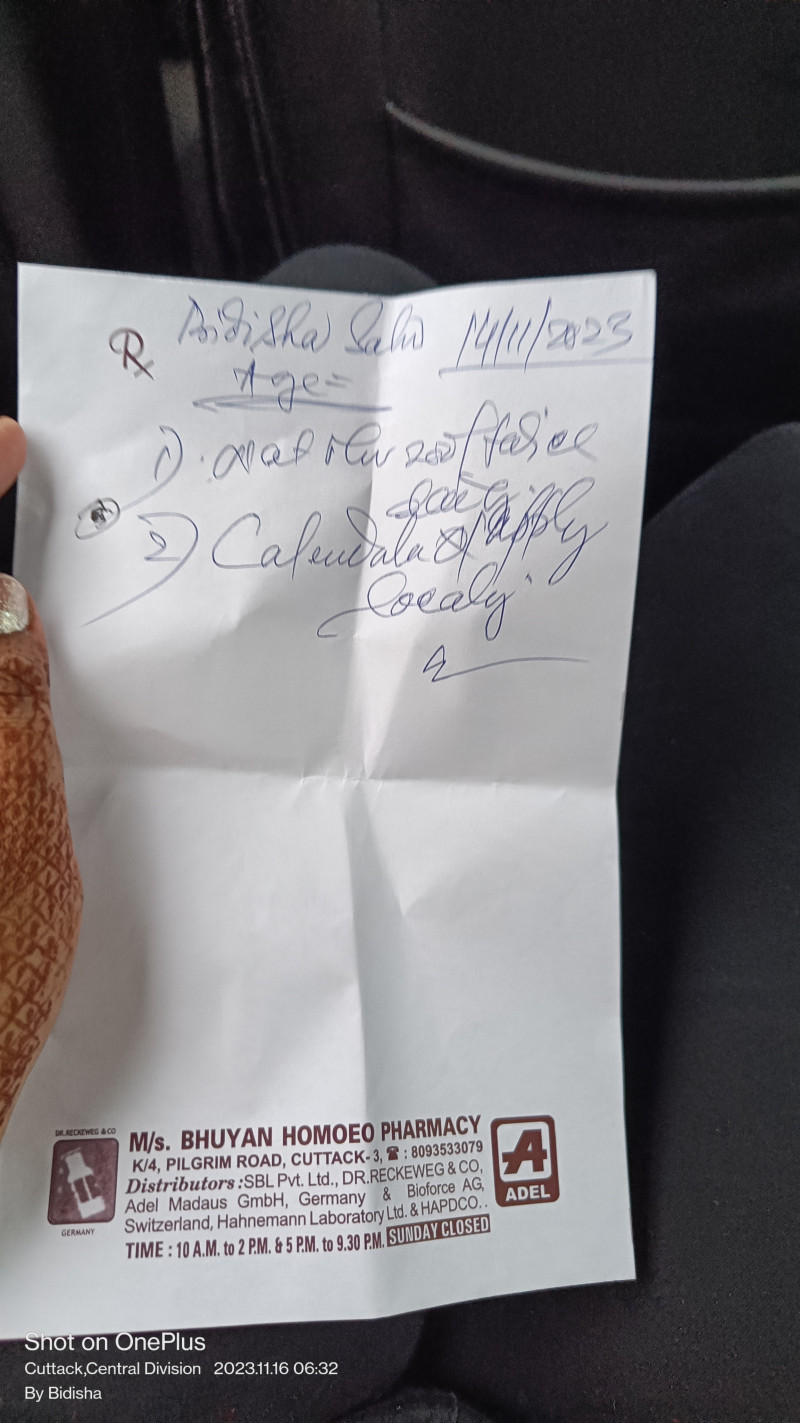 Rx Bidisha Sahu 14/11/2023
Age=
1). Nat Mur 200/ twice
daily.
2) Calendula Q/ Apply
localy.
DR. RECKEWEG & CO
GERMANY
M/s. BHUYAN HOMOEO PHARMACY
K/4, PILGRIM ROAD, CUTTACK-3, ☎ : 8093533079
Distributors :SBL Pvt. Ltd., DR.RECKEWEG & CO,
Adel Madaus GmbH, Germany & Bioforce AG,
Switzerland, Hahnemann Laboratory Ltd. & HAPDCO. .
TIME : 10 A.M. to 2 P.M. & 5 P.M. to 9.30 P.M. SUNDAY CLOSED
A
ADEL
Shot on OnePlus
Cuttack,Central Division 2023.11.16 06:32
By Bidisha